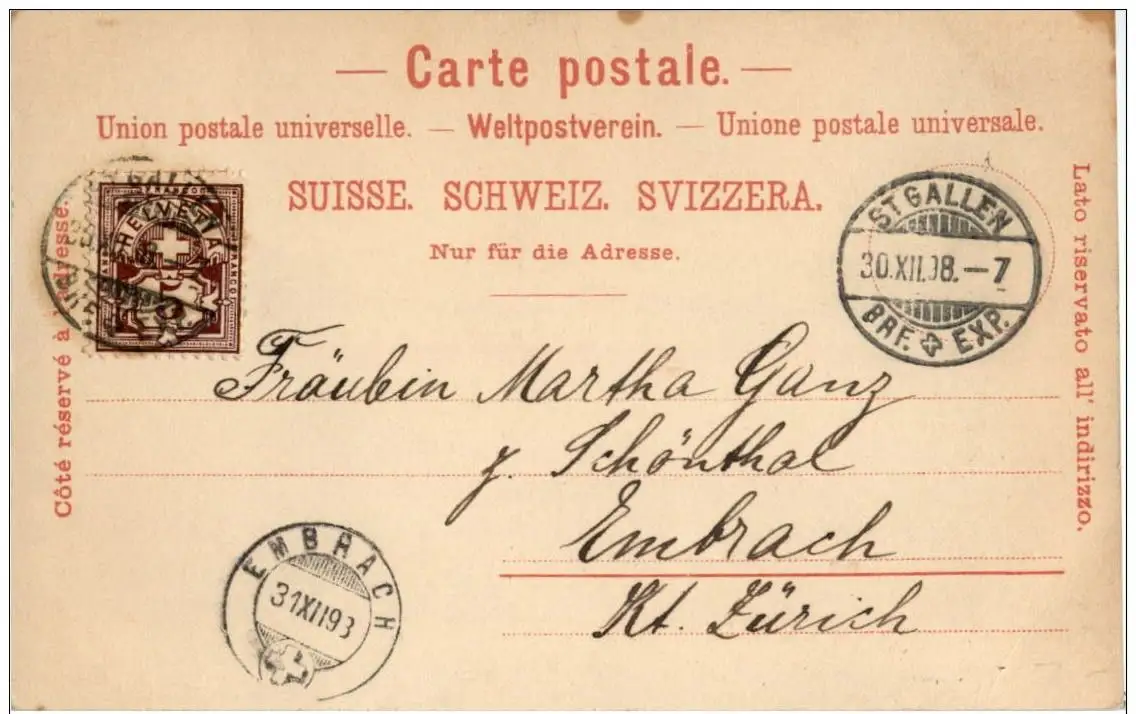 — Carte postale. —
Union postale universelle. — Weltpostverein. — Unione postale universale.
SUISSE. SCHWEIZ. SVIZZERA.
Nur für die Adresse.
Côté réservé à l'adresse.
Lato riservato all' indirizzo.
FRANCO
HELVETIA
FRANCO
ST. GALLEN
30.XII.98.–7
BRF. EXP.
Fräulein Martha Ganz
z. Schönthal
Embrach
Kt. Zürich
EMBRACH
31XII98